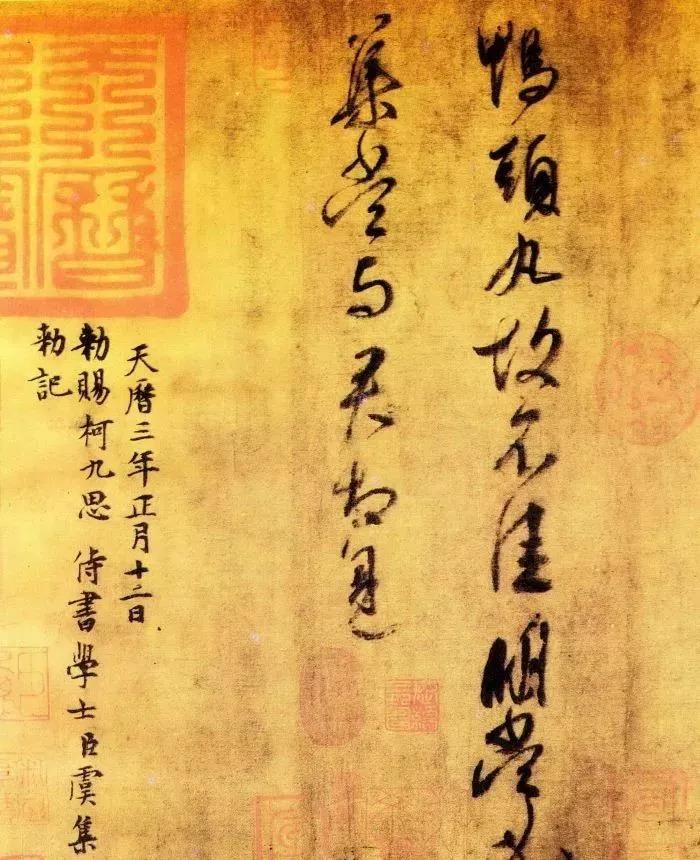 鴨頭丸故不佳明當
集當与君相見
天曆三年正月十二日
勑賜柯九思侍書學士臣虞集
勑記
天曆